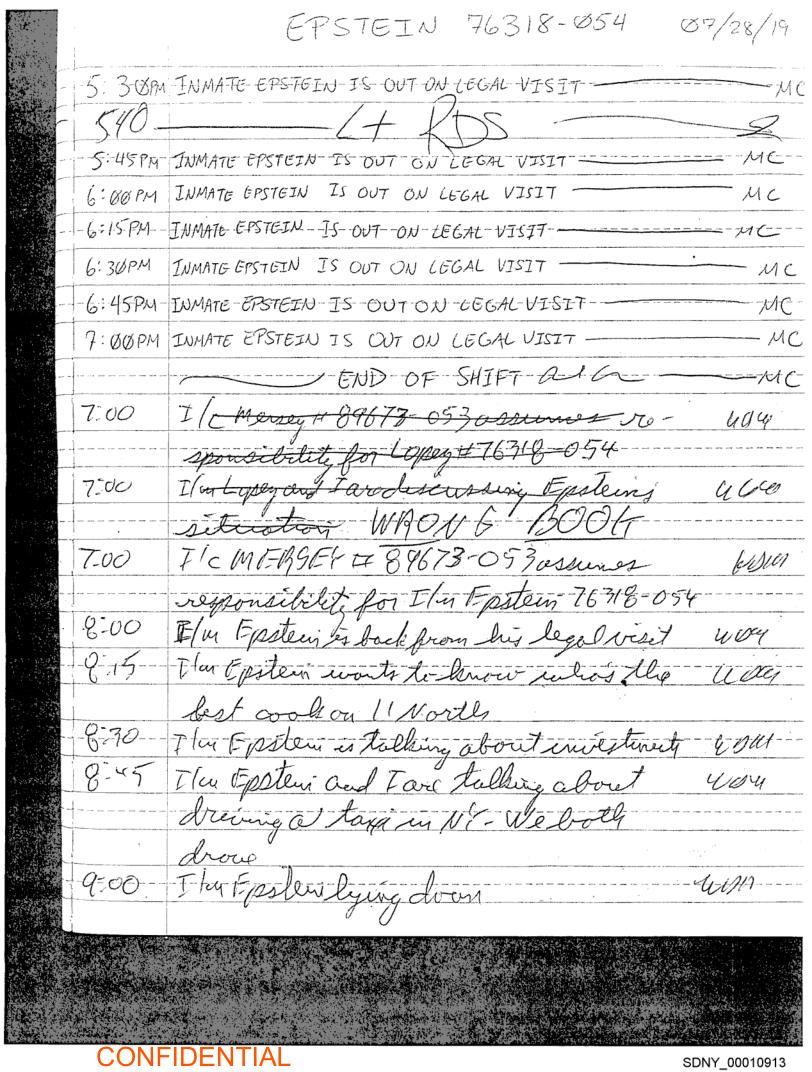 EPSTEIN 76318-054 07/28/19
5:30PM INMATE EPSTEIN IS OUT ON LEGAL VISIT MC
540 Lt RDS
5:45PM INMATE EPSTEIN IS OUT ON LEGAL VISIT MC
6:00PM INMATE EPSTEIN IS OUT ON LEGAL VISIT MC
6:15PM INMATE EPSTEIN IS OUT ON LEGAL VISIT MC
6:30PM INMATE EPSTEIN IS OUT ON LEGAL VISIT MC
6:45PM INMATE EPSTEIN IS OUT ON LEGAL VISIT MC
7:00PM INMATE EPSTEIN IS OUT ON LEGAL VISIT MC
END OF SHIFT MC
7:00 I/c Mersey # 89673-053 assumes re-
sponsibility for Lopez #76318-054
7:00 I/m Lopez and I are discussing Epsteins
situation WRONG BOOK
7:00 I/c MERSEY # 89673-053 assumes
responsibility for I/m Epstein 76318-054
8:00 I/m Epstein is back from his legal visit
8:15 I/m Epstein wants to know who's the
best cook on 11 North
8:30 I/m Epstein is talking about investments
8:45 I/m Epstein and I are talking about
driving a taxi in NY - We both
drove
9:00 I/m Epstein lying down
CONFIDENTIAL
SDNY_00010913